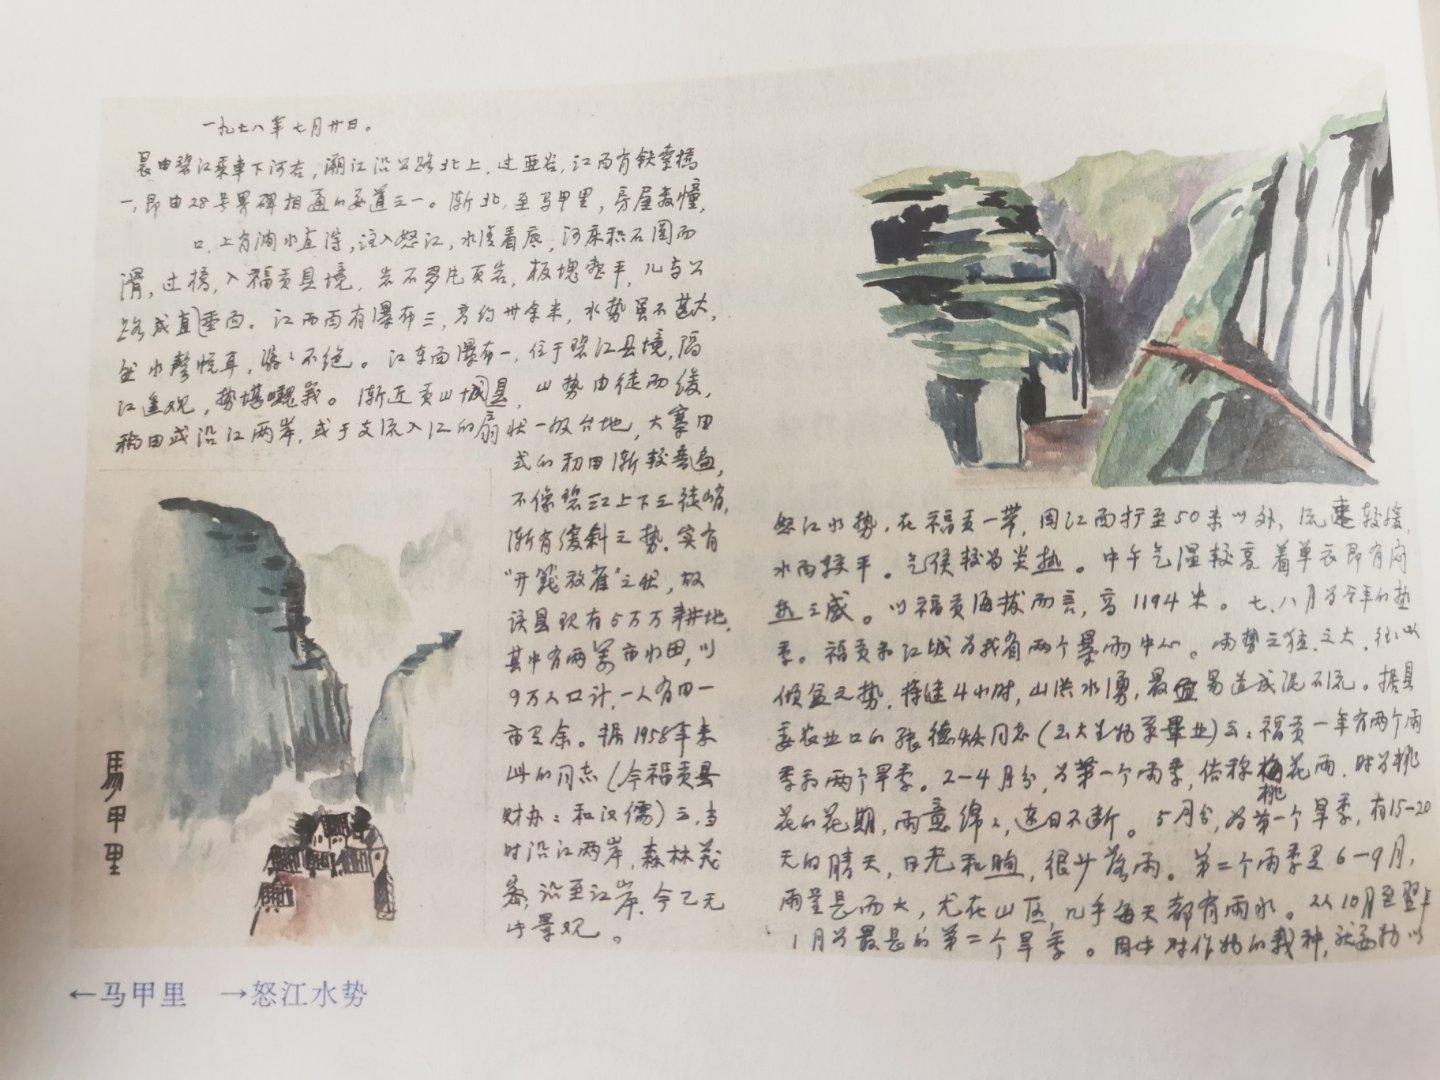 一九七八年七月廿日。
晨由碧江乘車下河谷，溯江沿公路北上，过亚谷，江西有铁索橋
一，即由28号界碑相通的要道之一。渐北，至马甲里，房屋幢，
口，上有涧水直泻，注入怒江，水浅看底，河床积石圆而
滑，过橋，入福贡县境，岩石多片页岩，板塊垂平，几与公
路成直垂面。江西面有瀑布三，高约卅余米，水势虽不甚大，
然水聲悦耳，潺々不绝。江东面瀑布一，位于碧江县境，隔
江遥观，势堪巍峩。渐近贡山城县，山势由徒而缓，
稻田或沿江两岸，或于支流入江的扇状一级台地，大寨田
式的初田渐较普遍，
不像碧江上下之徒峭，
渐有缓斜之势。实有
“开笼放雀”之状，故
该县现有5万万耕地，
其中有两萬市水田，以
9万人口计，一人有田一
市又余。据1958年来
此的同志（今福贡县
财办：和汉儒）云，当
时沿江两岸，森林茂
密，沿至江岸，今已无
此景观。
馬甲里
怒江水势，在福贡一带，因江面打至50米以外，流速较缓，
水面较平。气侯较为炎热。中午气温较高着单衣即有闷
热之感。以福贡海拔而言，高1194米。七、八月为全年的热
季。福贡和江城为我省两个暴雨中心。雨势之猛，之大，往以
倾盆之势，持续4小时，山洪水湧，最易造成泥石流。据县
委农业口的张德焕同志（云大生物系畢业）云：福贡一年有两个雨
季和两个旱季。2—4月份，为第一个雨季，俗称桃花雨，时为桃
花的花期，雨意绵々，连日不断。5月份，为第一个旱季，有15—20
天的晴天，日光和煦，很少落雨。第二个雨季是6—9月，
雨量是而大，尤在山区，几乎每天都有雨水。从10月至翌年
1月为最長的第二个旱季。因此对作物的栽种，就要抢以
←马甲里　→怒江水势